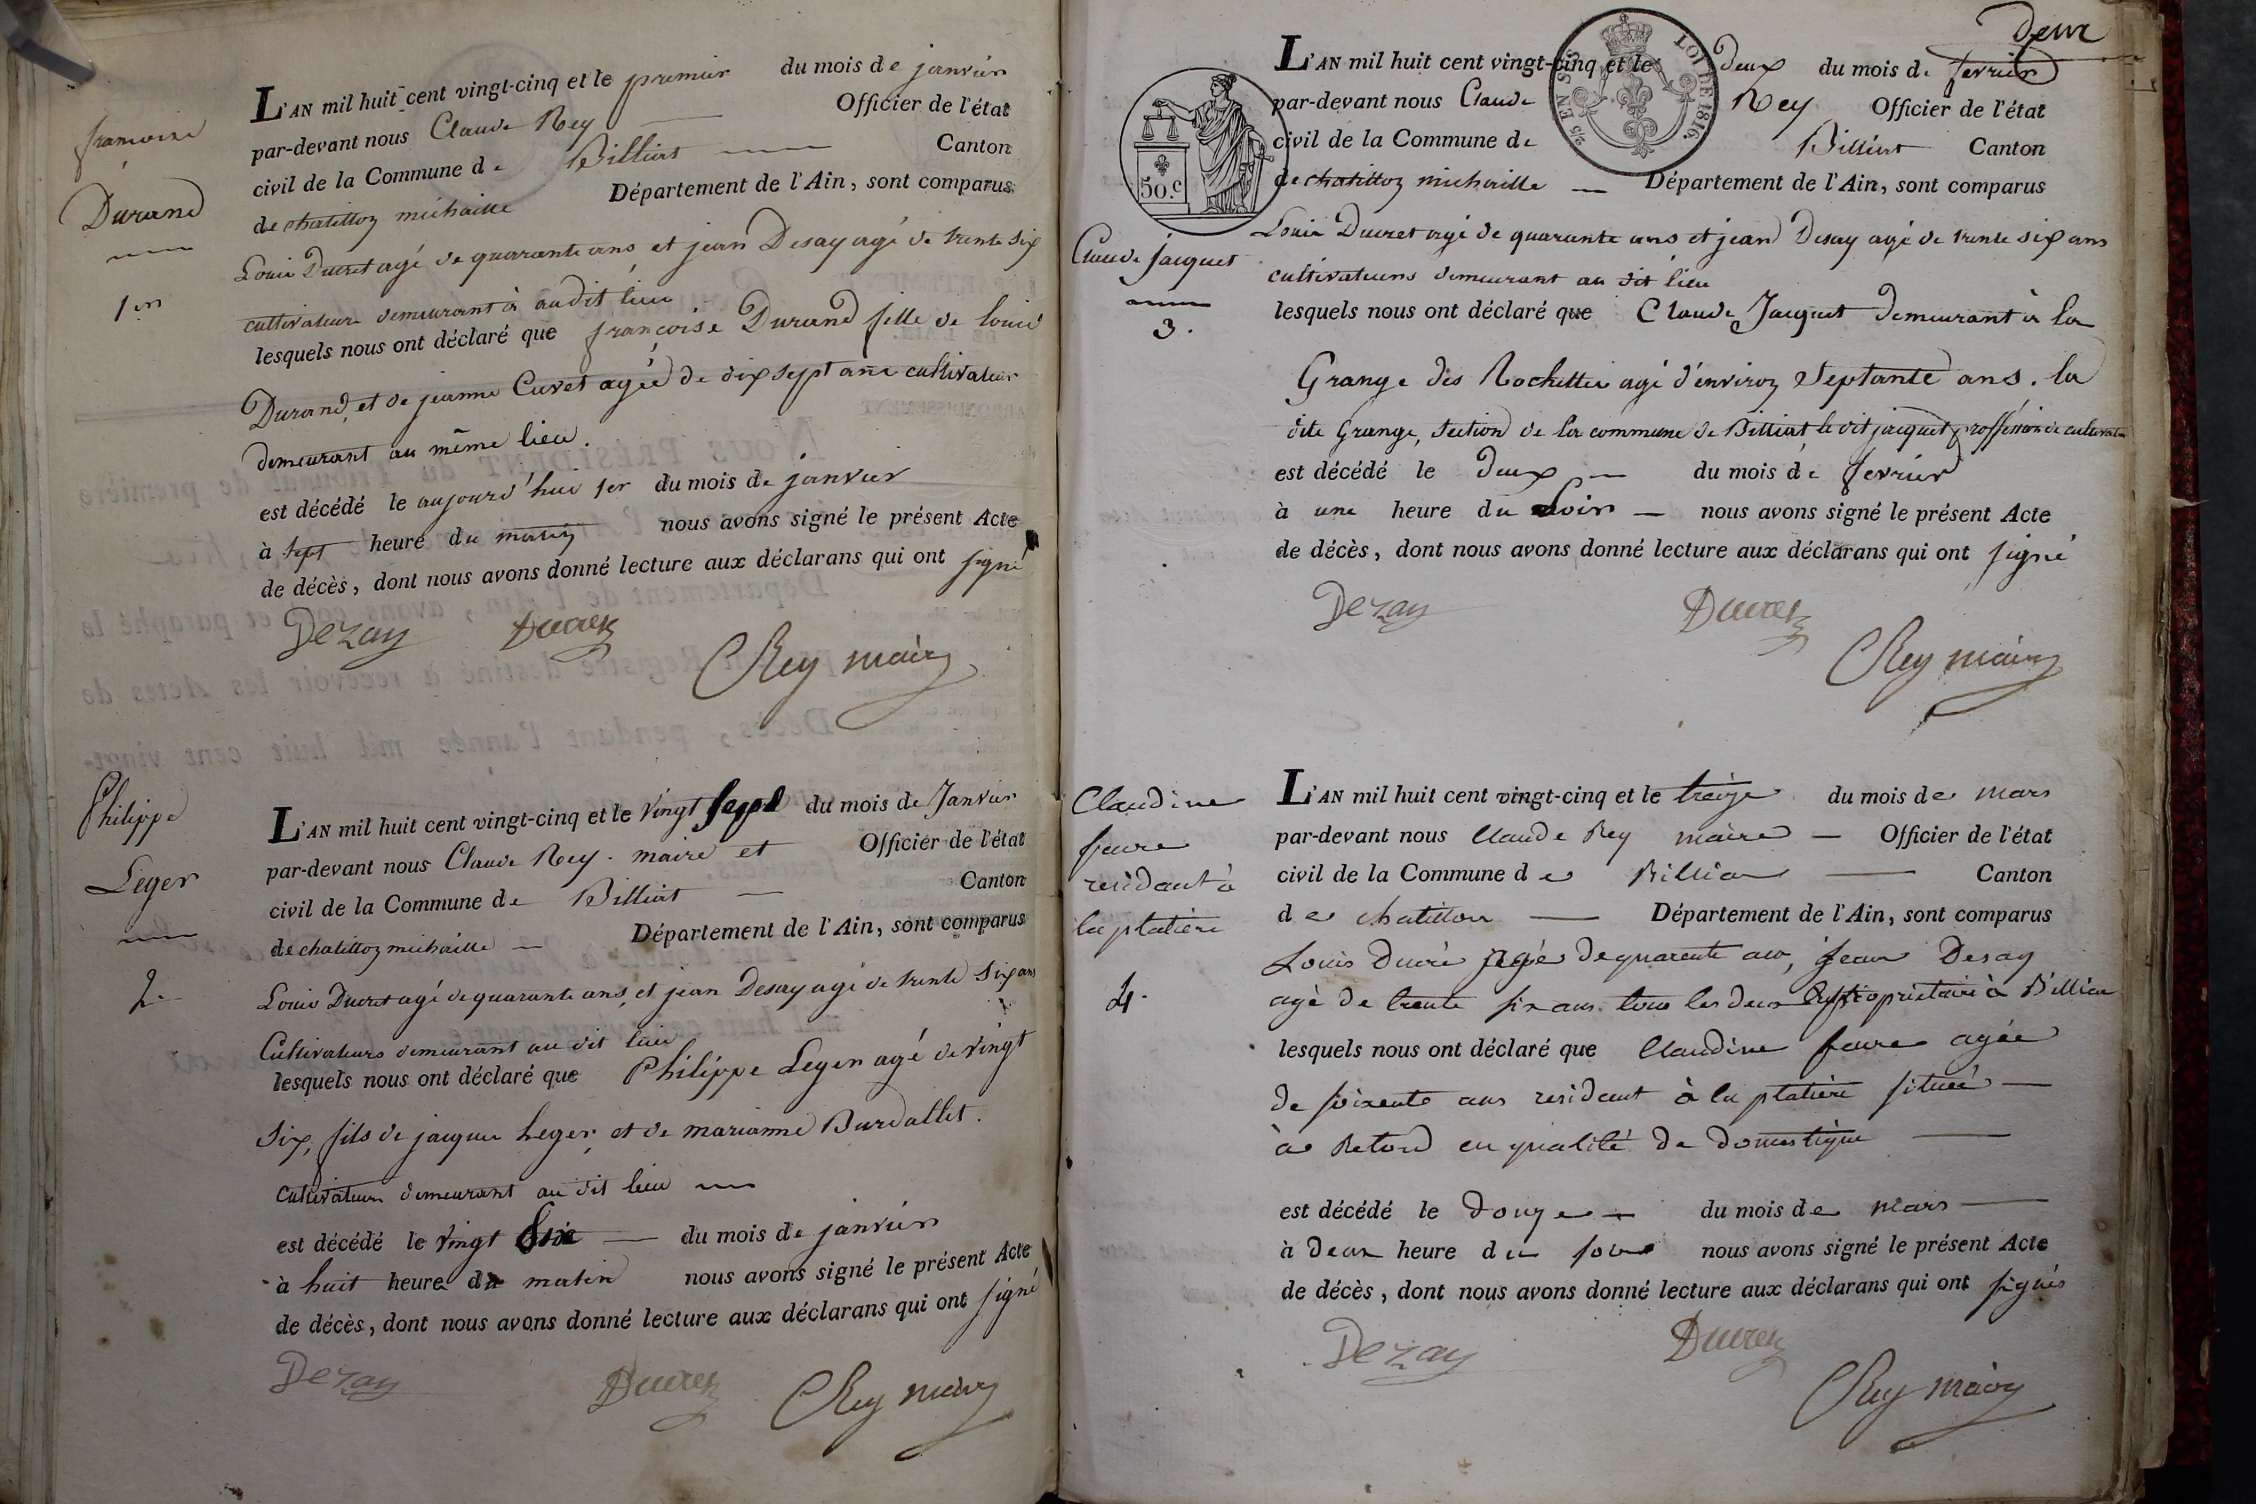 françoise
Durand
1er
L'AN mil huit cent vingt-cinq et le premier du mois de janvier
par-devant nous Claude Rey Officier de l'état
civil de la Commune de Billiat Canton
de chatillon michaille Département de l'Ain, sont comparus
Louis Ducret agé de quarante ans et jean Desay agé de trente six
cultivateurs demeurant à audit lieu
lesquels nous ont déclaré que françoise Durand fille de louis
Durand, et de jeanne Cuvet agée de dix sept ans cultivateur
demeurant au même lieu.
est décédé le aujourd'hui 1er du mois de janvier
à sept heure du matin nous avons signé le présent Acte
de décès, dont nous avons donné lecture aux déclarans qui ont signé
Dezay Ducret
CRey maire
Philippe
Leger
2
L'AN mil huit cent vingt-cinq et le vingt sept du mois de Janvier
par-devant nous Claude Rey. maire et Officier de l'état
civil de la Commune de Billiat Canton
de chatillon michaille Département de l'Ain, sont comparus
Louis Ducret agé de quarante ans, et jean Desay agé de trente six ans
Cultivateurs demeurant au dit lieu
lesquels nous ont déclaré que Philippe Leger agé de vingt
six, fils de jacques Leger, et de marianne Burdallet.
cultivateur demeurant au dit lieu
est décédé le vingt six du mois de janvier
à huit heure du matin nous avons signé le présent Acte
de décès, dont nous avons donné lecture aux déclarans qui ont signé
Dezay Ducret CRey maire
deux
50.c
25 EN SUS
LOI DE 1816.
Claude jacquet
3.
L'AN mil huit cent vingt-cinq et le deux du mois de fevrier
par-devant nous Claude Rey Officier de l'état
civil de la Commune de Billiat Canton
de chatillon michaille Département de l'Ain, sont comparus
Louis Ducret agé de quarante ans et jean Desay agé de trente six ans
cultivateurs demeurant au dit lieu
lesquels nous ont déclaré que Claude Jacquet demeurant à la
Grange des Rochettes agé d'environ Septante ans. la
dite Grange, section de la commune de Billiat, le dit jacquet proffession de cultivateur
est décédé le deux du mois de fevrier
à une heure du soir nous avons signé le présent Acte
de décès, dont nous avons donné lecture aux déclarans qui ont signé
Dezay Ducret
CRey maire
Claudine
favre
residant à
la platière
4.
L'AN mil huit cent vingt-cinq et le treize du mois de mars
par-devant nous Claude Rey maire Officier de l'état
civil de la Commune de Billiat Canton
de chatillon Département de l'Ain, sont comparus
Louis Ducré agé de quarente ans, jean Desay
agé de trente six ans tous les deux propriétaire à Billiat
lesquels nous ont déclaré que Claudine favre agée
de soixente ans residant à la platière située
à Retord en qualité de domestique
est décédé le douze du mois de mars
à deux heure du soir nous avons signé le présent Acte
de décès, dont nous avons donné lecture aux déclarans qui ont signés
Dezay Ducret
CRey maire